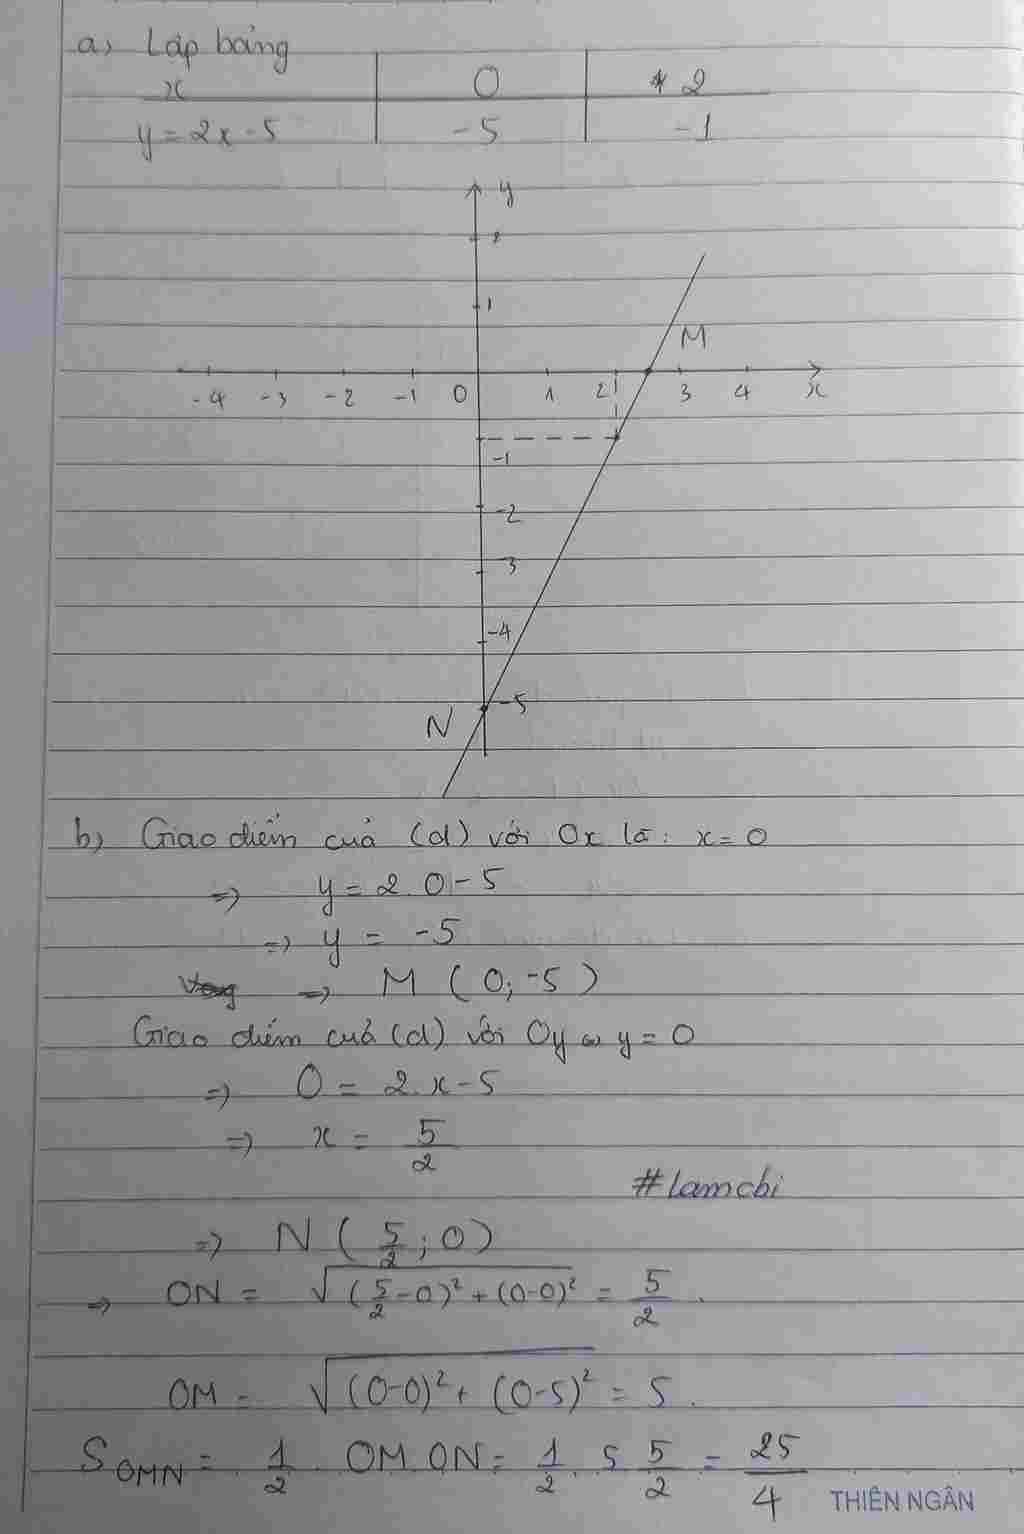 a) Lập bảng
x 0 2
y = 2x - 5 -5 -1
y
2
1
M
-4 -3 -2 -1 0 1 2 3 4 x
-1
-2
-3
-4
-5
N
b) Giao điểm của (d) với Ox là: x = 0
=> y = 2.0 - 5
=> y = -5
=> M (0; -5)
Giao điểm của (d) với Oy là y = 0
=> 0 = 2.x - 5
=> x = 5/2
#lamchi
=> N (5/2; 0)
=> ON = √((5/2 - 0)² + (0-0)²) = 5/2.
OM = √((0-0)² + (0-5)²) = 5.
S OMN = 1/2 . OM.ON = 1/2 . 5 5/2 = 25/4
THIÊN NGÂN